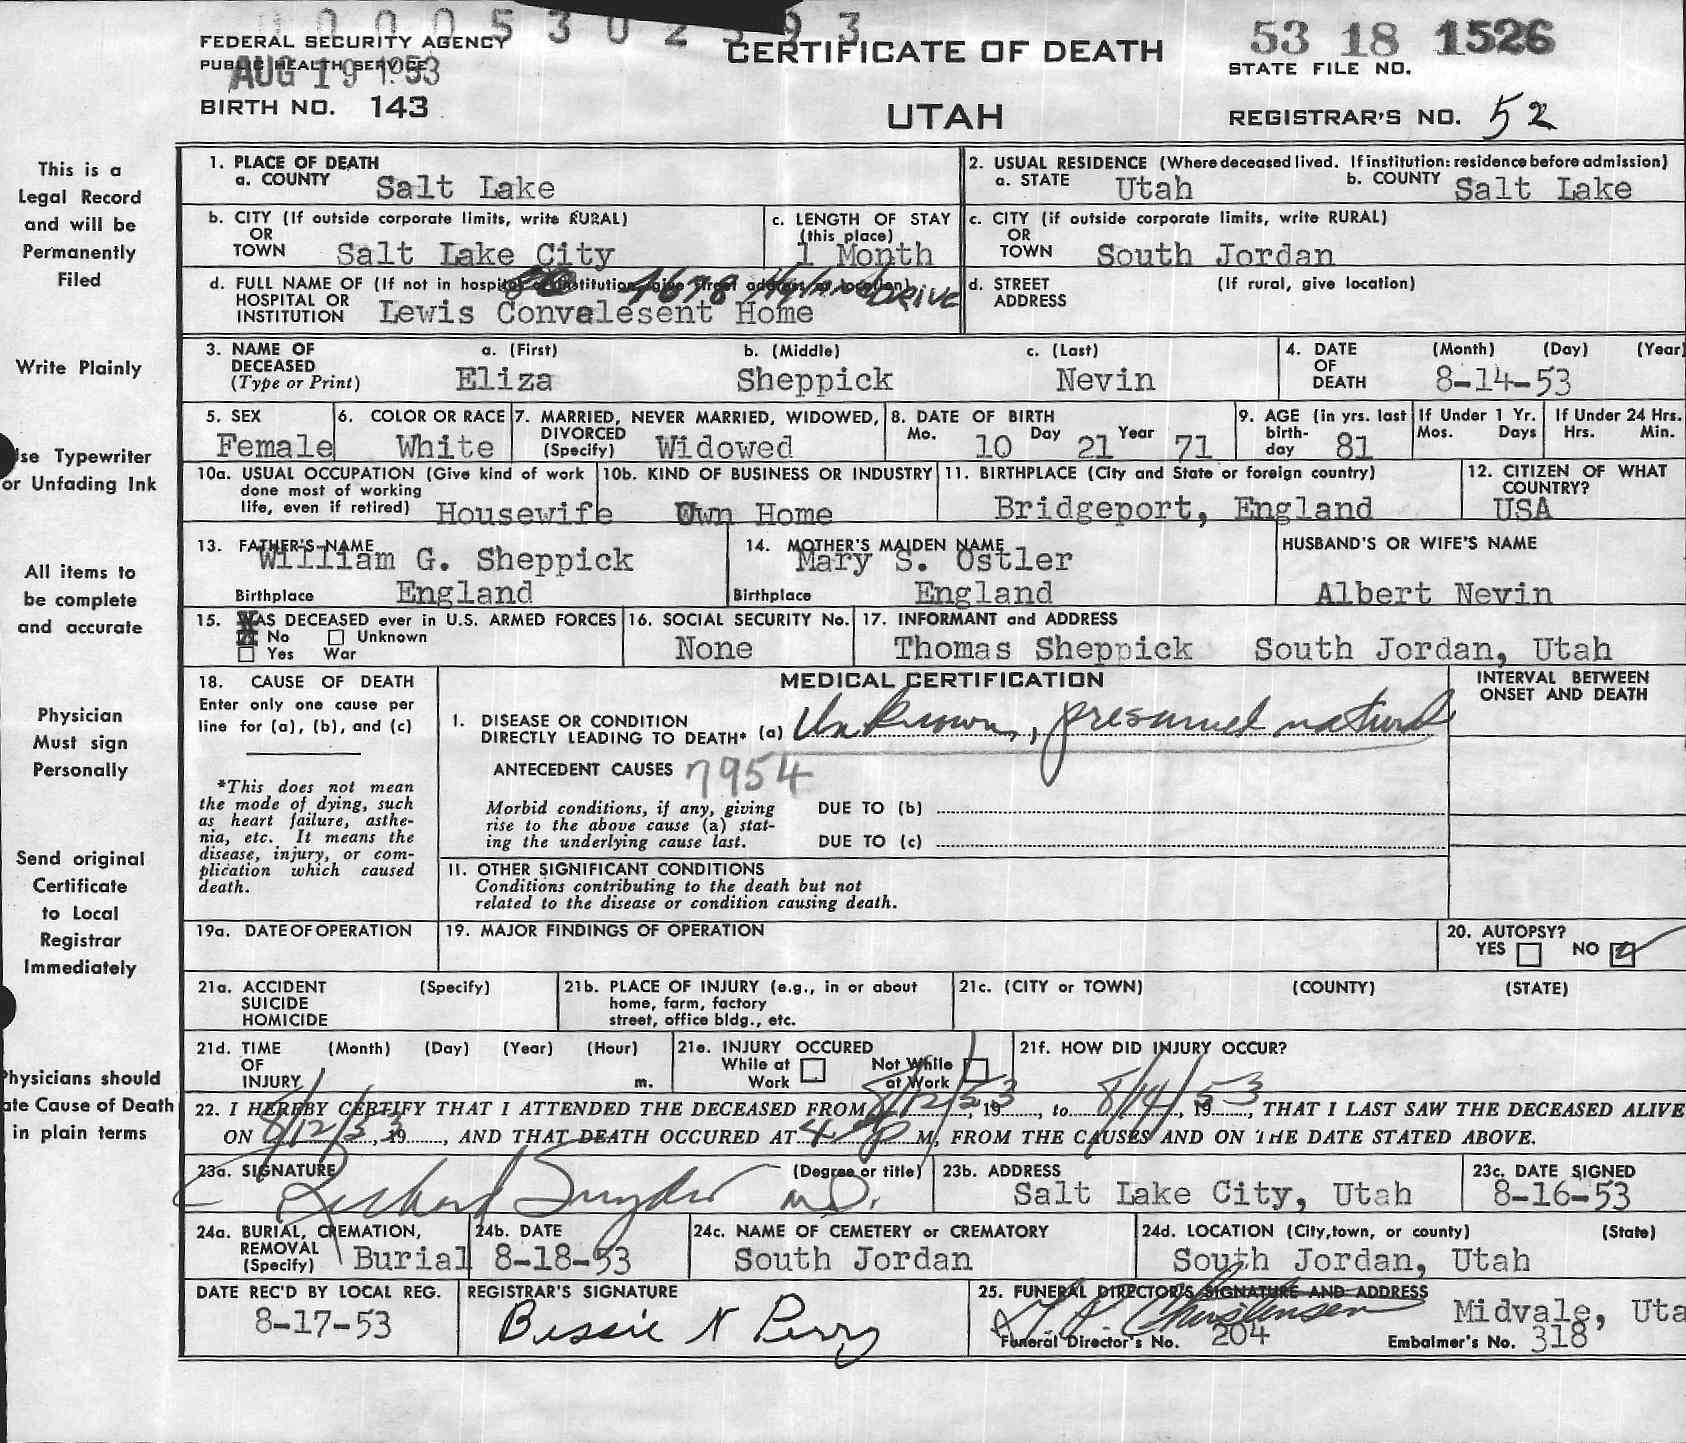 0 0 0 5 3 0 2 5 9 3
FEDERAL SECURITY AGENCY
PUBLIC HEALTH SERVICE
AUG 19 1953
BIRTH NO. 143
CERTIFICATE OF DEATH
UTAH
53 18 1526
STATE FILE NO.
REGISTRAR'S NO. 52
This is a
Legal Record
and will be
Permanently
Filed
Write Plainly
se Typewriter
or Unfading Ink
All items to
be complete
and accurate
Physician
Must sign
Personally
Send original
Certificate
to Local
Registrar
Immediately
Physicians should
ate Cause of Death
in plain terms
1. PLACE OF DEATH
a. COUNTY Salt Lake
2. USUAL RESIDENCE (Where deceased lived. If institution: residence before admission)
a. STATE Utah b. COUNTY Salt Lake
b. CITY (If outside corporate limits, write RURAL)
OR
TOWN Salt Lake City
c. LENGTH OF STAY
(this place)
1 Month
c. CITY (if outside corporate limits, write RURAL)
OR
TOWN South Jordan
d. FULL NAME OF (If not in hospital or institution, give street address or location)
HOSPITAL OR
INSTITUTION Lewis Convalesent Home
4678 Drive
d. STREET (If rural, give location)
ADDRESS
3. NAME OF DECEASED
(Type or Print)
a. (First) b. (Middle) c. (Last)
Eliza Sheppick Nevin
4. DATE OF DEATH (Month) (Day) (Year)
8-14-53
5. SEX
Female
6. COLOR OR RACE
White
7. MARRIED, NEVER MARRIED, WIDOWED,
DIVORCED
(Specify) Widowed
8. DATE OF BIRTH
Mo. 10 Day 21 Year 71
9. AGE (in yrs. last
birth-
day 81
If Under 1 Yr.
Mos. Days
If Under 24 Hrs.
Hrs. Min.
10a. USUAL OCCUPATION (Give kind of work
done most of working
life, even if retired) Housewife
10b. KIND OF BUSINESS OR INDUSTRY
Own Home
11. BIRTHPLACE (City and State or foreign country)
Bridgeport, England
12. CITIZEN OF WHAT
COUNTRY?
USA
13. FATHER'S NAME
William G. Sheppick
Birthplace England
14. MOTHER'S MAIDEN NAME
Mary S. Ostler
Birthplace England
HUSBAND'S OR WIFE'S NAME
Albert Nevin
15. WAS DECEASED ever in U.S. ARMED FORCES
No Unknown
Yes War
16. SOCIAL SECURITY No.
None
17. INFORMANT and ADDRESS
Thomas Sheppick South Jordan, Utah
18. CAUSE OF DEATH
Enter only one cause per
line for (a), (b), and (c)
*This does not mean
the mode of dying, such
as heart failure, asthe-
nia, etc. It means the
disease, injury, or com-
plication which caused
death.
MEDICAL CERTIFICATION
INTERVAL BETWEEN
ONSET AND DEATH
I. DISEASE OR CONDITION
DIRECTLY LEADING TO DEATH* (a) Unknown, presumed natural
ANTECEDENT CAUSES 7954
Morbid conditions, if any, giving
rise to the above cause (a) stat-
ing the underlying cause last.
DUE TO (b)
DUE TO (c)
II. OTHER SIGNIFICANT CONDITIONS
Conditions contributing to the death but not
related to the disease or condition causing death.
19a. DATE OF OPERATION
19. MAJOR FINDINGS OF OPERATION
20. AUTOPSY?
YES NO
21a. ACCIDENT (Specify)
SUICIDE
HOMICIDE
21b. PLACE OF INJURY (e.g., in or about
home, farm, factory
street, office bldg., etc.
21c. (CITY or TOWN) (COUNTY) (STATE)
21d. TIME (Month) (Day) (Year) (Hour)
OF
INJURY m.
21e. INJURY OCCURED
While at Work Not While at Work
21f. HOW DID INJURY OCCUR?
22. I HEREBY CERTIFY THAT I ATTENDED THE DECEASED FROM 8/12/53, 19, to 8/14/53, 19, THAT I LAST SAW THE DECEASED ALIVE
ON 8/12/53, 19, AND THAT DEATH OCCURED AT 4 P M, FROM THE CAUSES AND ON THE DATE STATED ABOVE.
23a. SIGNATURE (Degree or title)
Richard Snyder M.D.
23b. ADDRESS
Salt Lake City, Utah
23c. DATE SIGNED
8-16-53
24a. BURIAL, CREMATION,
REMOVAL
(Specify) Burial
24b. DATE
8-18-53
24c. NAME OF CEMETERY or CREMATORY
South Jordan
24d. LOCATION (City,town, or county) (State)
South Jordan, Utah
DATE REC'D BY LOCAL REG.
8-17-53
REGISTRAR'S SIGNATURE
Bessie N Perry
25. FUNERAL DIRECTOR'S SIGNATURE AND ADDRESS
Christensen Midvale, Uta
Funeral Director's No. 204 Embalmer's No. 318